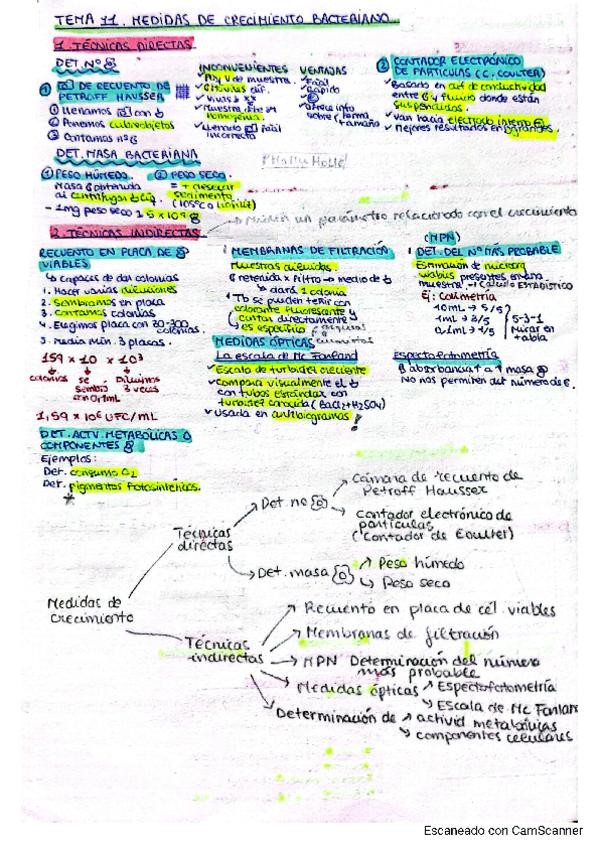 TEMA 11. MEDIDAS DE CRECIMIENTO BACTERIANO
1. TÉCNICAS DIRECTAS
DET. Nº
① DE RECUENTO DE
PETROFF HAUSSER
① Llenamos con
② Ponemos cubreobjetos
③ Contamos nº
INCONVENIENTES
Muestra debe ser
homogénea.
Llenado fácil
incorrecto
VENTAJAS
Fácil
Rápido
Ofrece info
sobre forma,
tamaño
② CONTADOR ELECTRÓNICO
DE PARTÍCULAS (C. COULTER)
Basado en dif de conductividad
entre y fluido donde están
suspendidas.
Van hacia electrodo interno
Mejores resultados en grandes.
DET. MASA BACTERIANA
① PESO HÚMEDO.
Masa obtenida
al centrifugar
- 1mg peso seco 15 x 10⁹
② PESO SECO.
= + desecar
sedimento
2. TÉCNICAS INDIRECTAS
→ Miden un parámetro relacionado con el crecimiento
RECUENTO EN PLACA DE
VIABLES
↳ capaces de dar colonias
1. Hacer varias diluciones
2. Sembramos en placa
3. Contamos colonias
4. Elegimos placa con 30-300
colonias.
5. media mín. 3 placas.
159 x 10 x 10³
colonias se Diluimos
sembró 3 veces
con 0,1mL
1,59 x 10⁶ UFC/mL
DET. ACTV. METABÓLICAS O
COMPONENTES
Ejemplos:
Det. consumo O₂
Det. pigmentos fotosintéticos.
MEMBRANAS DE FILTRACIÓN
Muestras diluidas.
retenida x filtro → medio de
↳ dará 1 colonia
Tb se pueden teñir con
colorante fluorescente y
contar directamente
es específico
MEDIDAS ÓPTICAS
La escala de Mc Farland
Escala de turbidez creciente
Compara visualmente el
con tubos estándar con
turbidez conocida (BaCl₂+H₂SO₄)
Usada en antibiogramas!
(MPN)
DET. DEL Nº MÁS PROBABLE
Estimación de microorg
viables presentes en una
muestra → Cálculo ESTADÍSTICO
Ej: Colimetría
10mL → 5/5
1mL → 3/5
0,1mL → 1/5
5-3-1
Mirar en
tabla
Espectrofotometría
absorbancia ↑ a ↑ masa
No nos permiten det número de
Medidas de
crecimiento
Técnicas
directas
→ Det. nº
Cámara de recuento de
Petroff Hausser
Contador electrónico de
partículas
(Contador de Coulter)
→ Det. masa
Peso húmedo
Peso seco
Técnicas
indirectas
Recuento en placa de cél. viables
Membranas de filtración
MPN Determinación del número
más probable
Medidas ópticas
Espectrofotometría
Escala de Mc Farland
Determinación de
activid metabólicas
componentes celulares
Escaneado con CamScanner